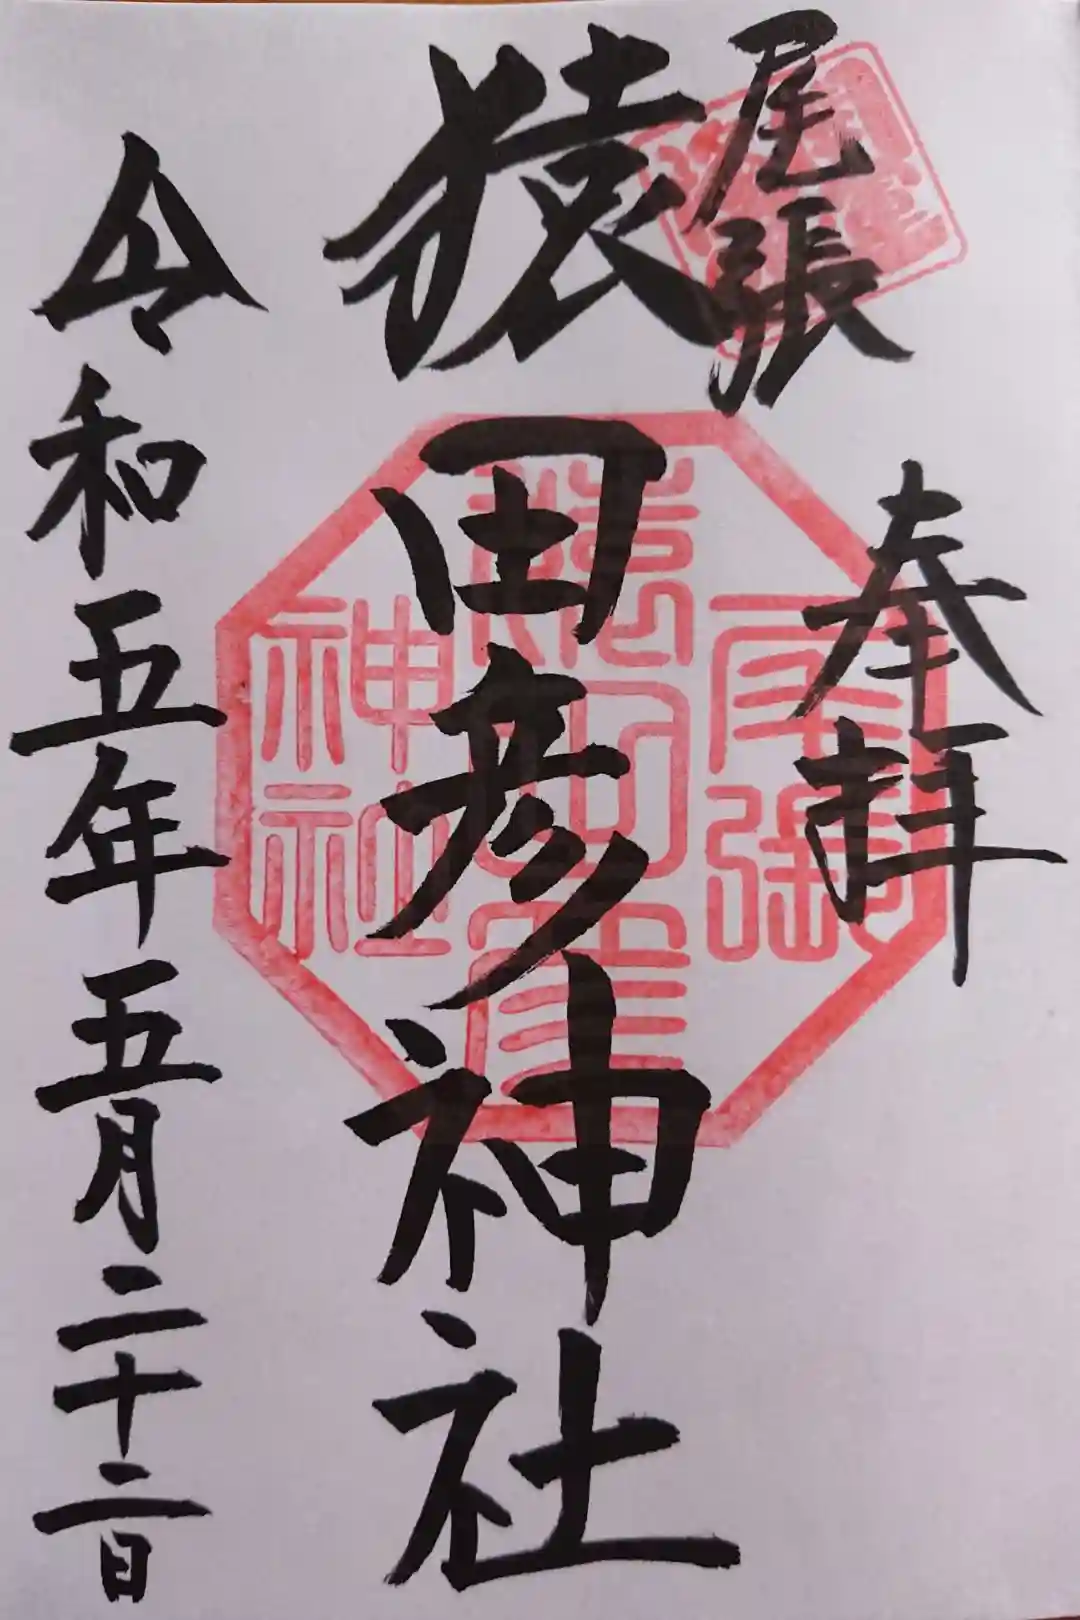 奉拝
尾張
猿田彦神社
令和五年五月二十二日
尾張
猿田彦
神社